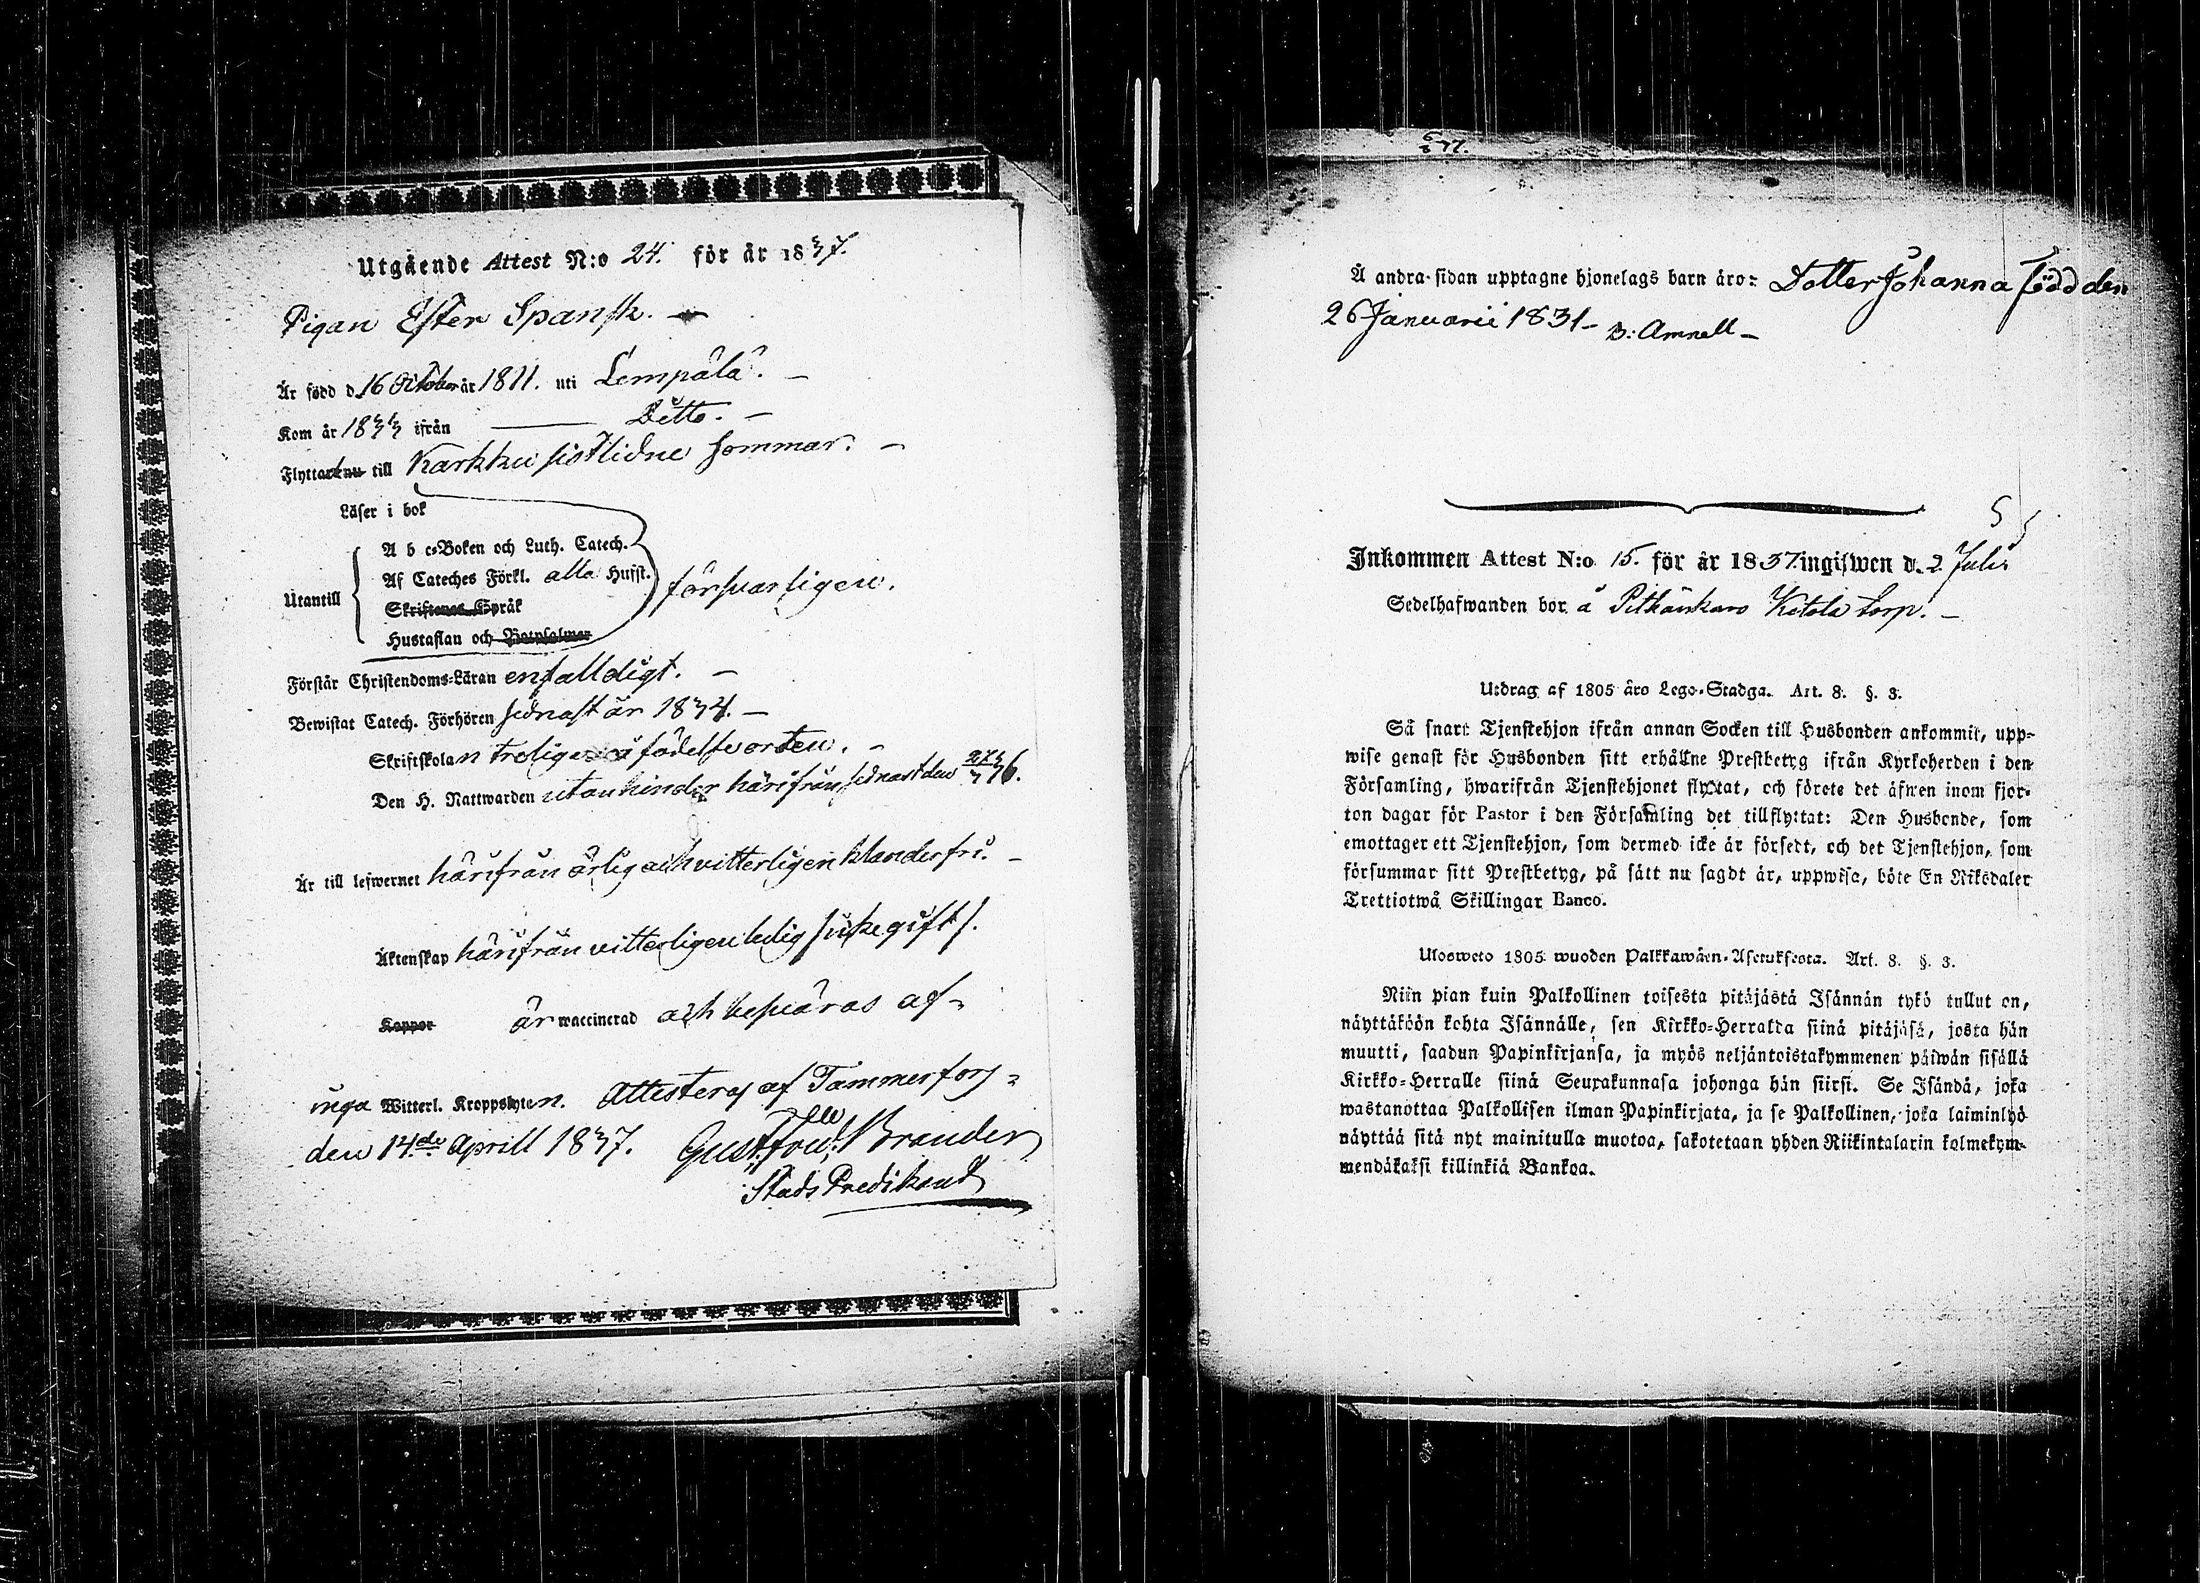 Utgående Attest N:o 24. för år 1837.
Pigan Ester Spansk. —
Är född d. 16 October år 1811. uti Lempälä. —
Kom år 1833 ifrån —— Ditto. —
Flyttar nu till Karkku sistlidne sommar. —
Läser i bok
A b c-Boken och Luth. Catech.
Af Cateches Förkl. alla Husst.
Utantill försvarligen.
Skriftenes Språk
Hustaflan och Botpsalmer
Förstår Christendoms-Läran enfalldigt. —
Bewistat Catech. Förhören sednast år 1834. —
Skriftskolan troligen å födelseorten. —
Den H. Nattwarden utan hinder härifrån sednast den 27/3 36.
Är till lefwernet härifrån ärlig och vitterligen klanderfri. —
Äktenskap härifrån vitterligen ledig (icke gift).
Koppor är waccinerad och besväras af
inga Witterl. Kroppslyten. Attesteras af Tammerfors
den 14de Aprill 1837. Gust. Brander
Stads Predikant
637.
Å andra sidan upptagne hjonelags barn äro: Dotter Johanna född den
26 Januarii 1831 — B: Amnell —
5
Inkommen Attest N:o 15. för år 1837. ingifwen d. 2 Julii
Sedelhafwanden bor å Pitkänkaro Ketola torp. —
Utdrag af 1805 års Lego-Stadga. Art. 8. §. 3.
Så snart Tjenstehjon ifrån annan Socken till Husbonden ankommit, upp-
wise genast för Husbonden sitt erhållne Prestbetyg ifrån Kyrkoherden i den
Församling, hwarifrån Tjenstehjonet flyttat, och förete det äfwen inom fjor-
ton dagar för Pastor i den Församling det tillflyttat: Den Husbonde, som
emottager ett Tjenstehjon, som dermed icke är försedt, och det Tjenstehjon, som
försummar sitt Prestbetyg, på sätt nu sagdt är, uppwisa, böte En Riksdaler
Trettiotwå Skillingar Banco.
Ulosweto 1805 wuoden Palkkawäen-Asetuksesta. Art. 8. §. 3.
Niin pian kuin Palkollinen toisesta pitäjästä Isännän tykö tullut on,
näyttäköön kohta Isännälle, sen Kirkko-Herralda siinä pitäjäsä, josta hän
muutti, saadun Papinkirjansa, ja myös neljäntoistakymmenen päiwän sisällä
Kirkko-Herralle siinä Seurakunnasa johonga hän siirsi. Se Isändä, joka
wastanottaa Palkollisen ilman Papinkirjata, ja se Palkollinen, joka laiminlyö
näyttää sitä nyt mainitulla muotoa, sakotetaan yhden Riikintalarin kolmekym-
mendäkaksi killinkiä Bankoa.